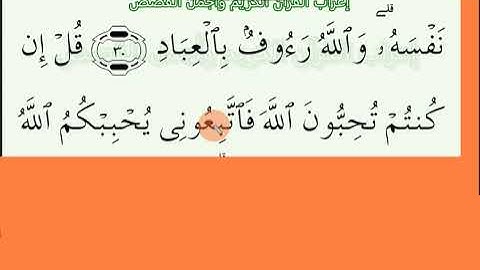 إعراب القرآن الكريم وأجمل القصص
نَفْسَهُۥ ۗ وَٱللَّهُ رَءُوفٌۢ بِٱلْعِبَادِ ٣٠ قُلْ إِن
كُنتُمْ تُحِبُّونَ ٱللَّهَ فَٱتَّبِعُونِى يُحْبِبْكُمُ ٱللَّهُ